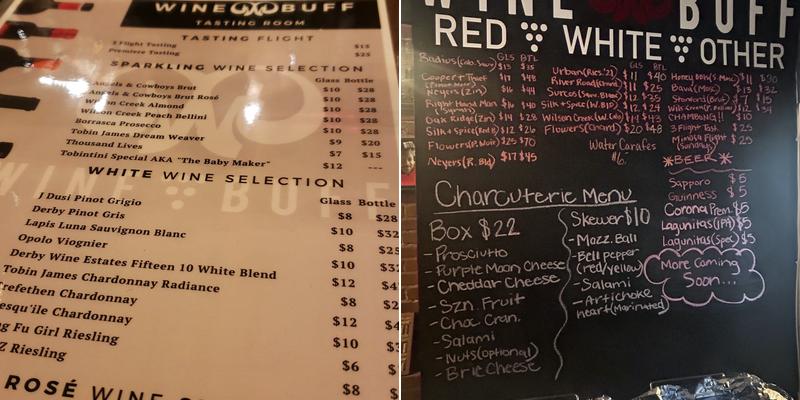 WINE BUFF
TASTING ROOM
TASTING FLIGHT
3 Flight Tasting $15
Premiere Tasting $25
SPARKLING WINE SELECTION
Glass Bottle
Angels & Cowboys Brut $10 $28
Angels & Cowboys Brut Rosé $10 $28
Wilson Creek Almond $10 $28
Wilson Creek Peach Bellini $10 $28
Borrasca Prosecco $10 $28
Tobin James Dream Weaver $9 $20
Thousand Lives $7 $15
Tobintini Special AKA "The Baby Maker" $12 ---
WHITE WINE SELECTION
Glass Bottle
J Dusi Pinot Grigio $8 $28
Derby Pinot Gris $10 $32
Lapis Luna Sauvignon Blanc $8
Opolo Viognier $10 $32
Derby Wine Estates Fifteen 10 White Blend $12
Tobin James Chardonnay Radiance $8
Trefethen Chardonnay $12
Chardonnay $10
Fu Girl Riesling $6
Z Riesling $8
ROSÉ WINE
WINE BUFF
RED WHITE OTHER
GLS BTL
Radius (Cab. Sauv) $13 $35
$17 $48
$16 $44
Right Hand Man $16 $40
Oak Ridge (Zin) $14 $28
Silk + Spice (Red B) $12 $26
Flowers (P. Noir) $25 $70
Neyers (R. Bld) $17 $45
GLS BTL
Urban (Ries. '21) $11 $40
River Road $11 $25
$12 $35
Silk + Spice (W. BLD) $12
Wilson Creek $14 $43
Flowers (Chard) $20 $48
Water Carafes
$6.
$11 $30
$13 $32
$7 $15
$12 $34
$10
3 Flight Tast. $25
Mimosa Flight $25
(Sundays)
*BEER*
Sapporo $5
Guinness $5
Corona Prem. $5
Lagunitas (IPA) $5
Lagunitas (Spec) $5
More Coming
Soon...
Charcuterie Menu
Box $22
- Prosciutto
- Purple Moon Cheese
- Cheddar Cheese
- Szn. Fruit
- Choc Cran.
- Salami
- Nuts (optional)
- Brie Cheese
Skewer $10
- Mozz. Ball
- Bell pepper
(red/yellow)
- Salami
- Artichoke
heart (Marinated)